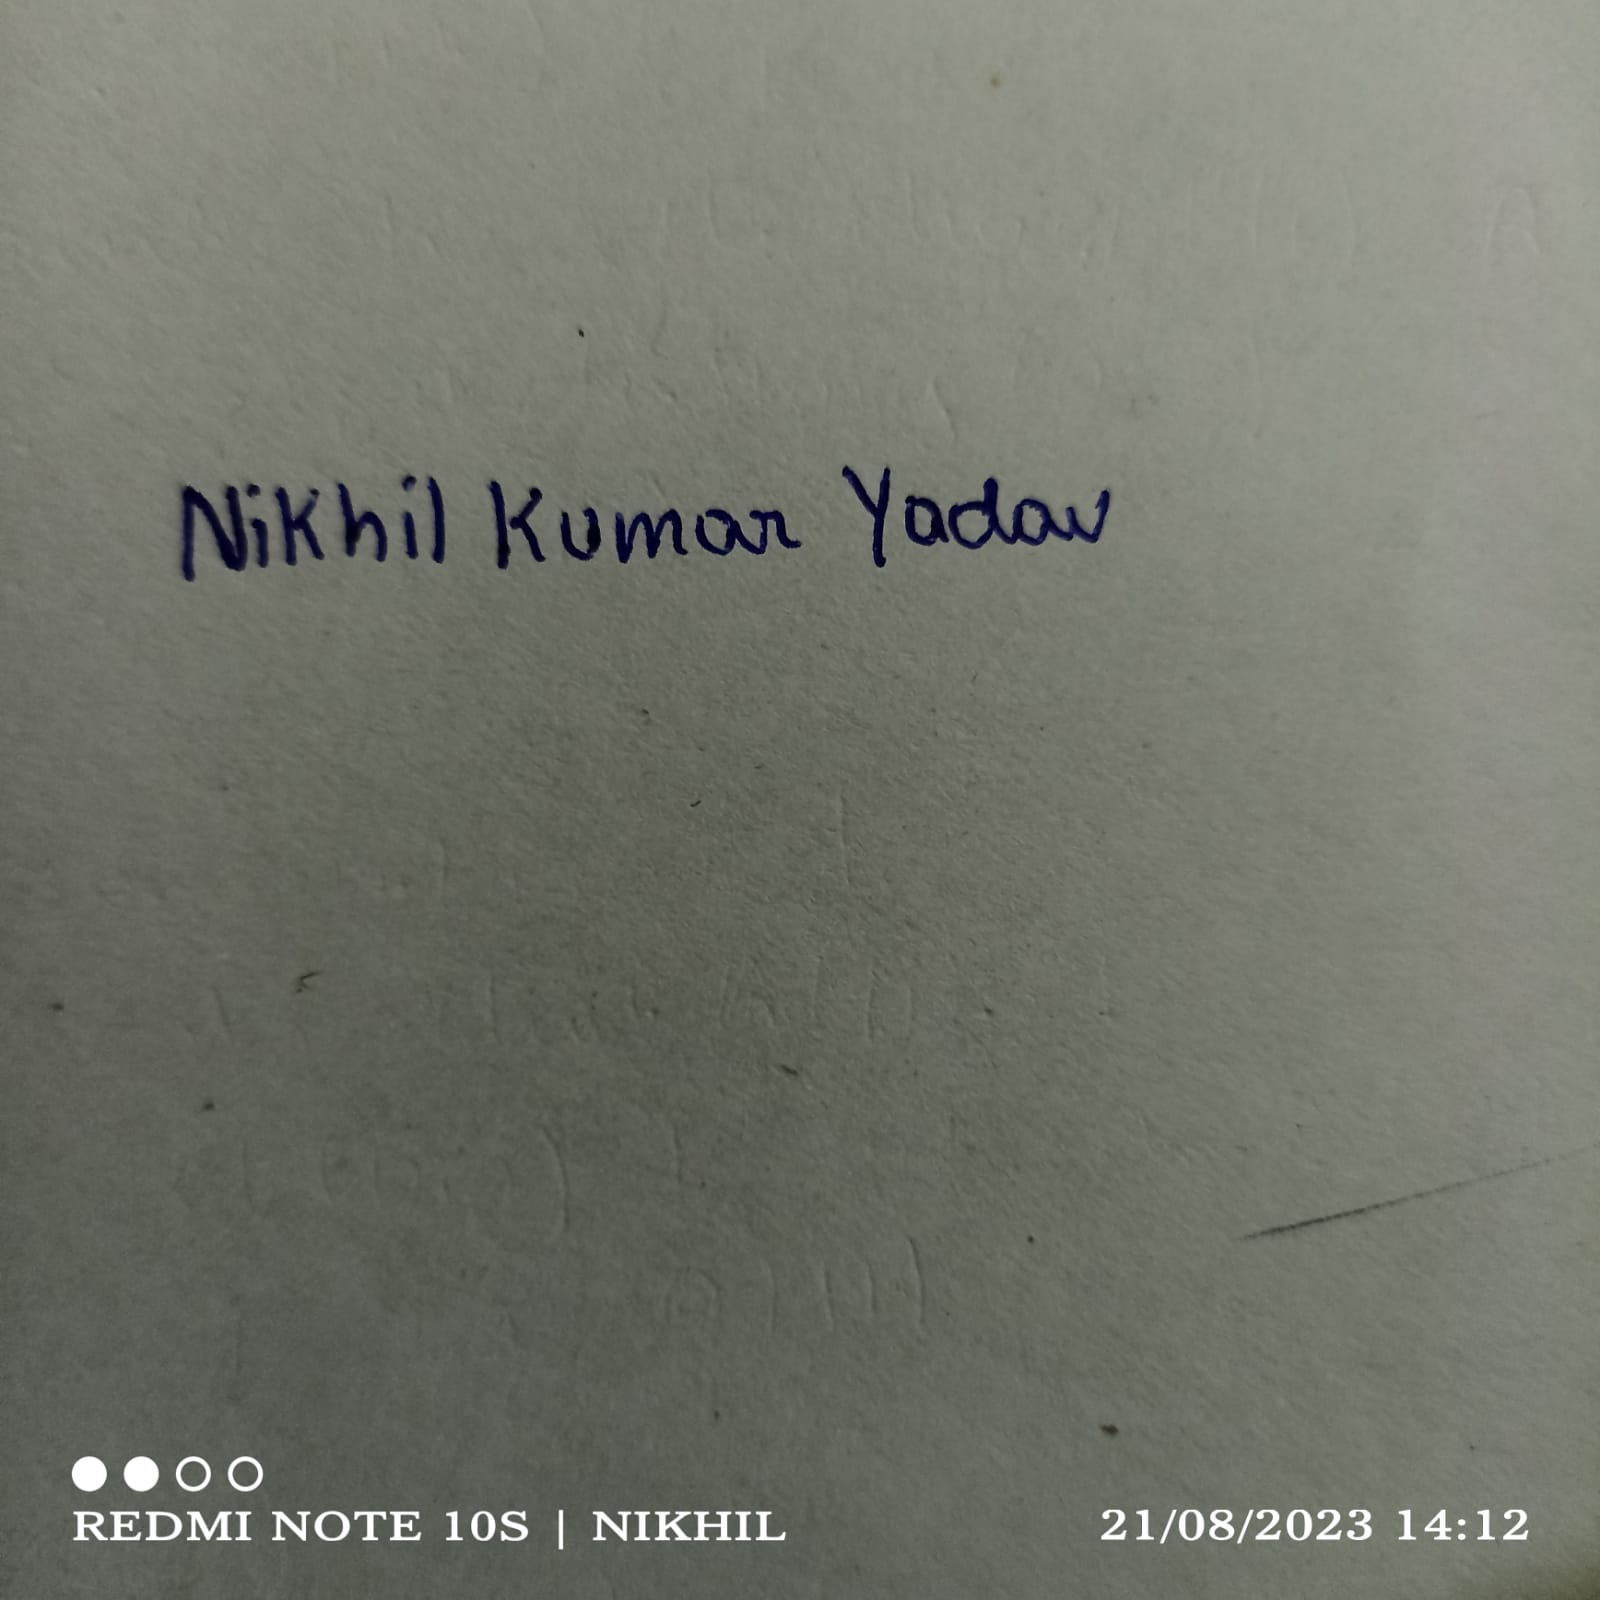 Nikhil Kumar Yadav
REDMI NOTE 10S | NIKHIL
21/08/2023 14:12